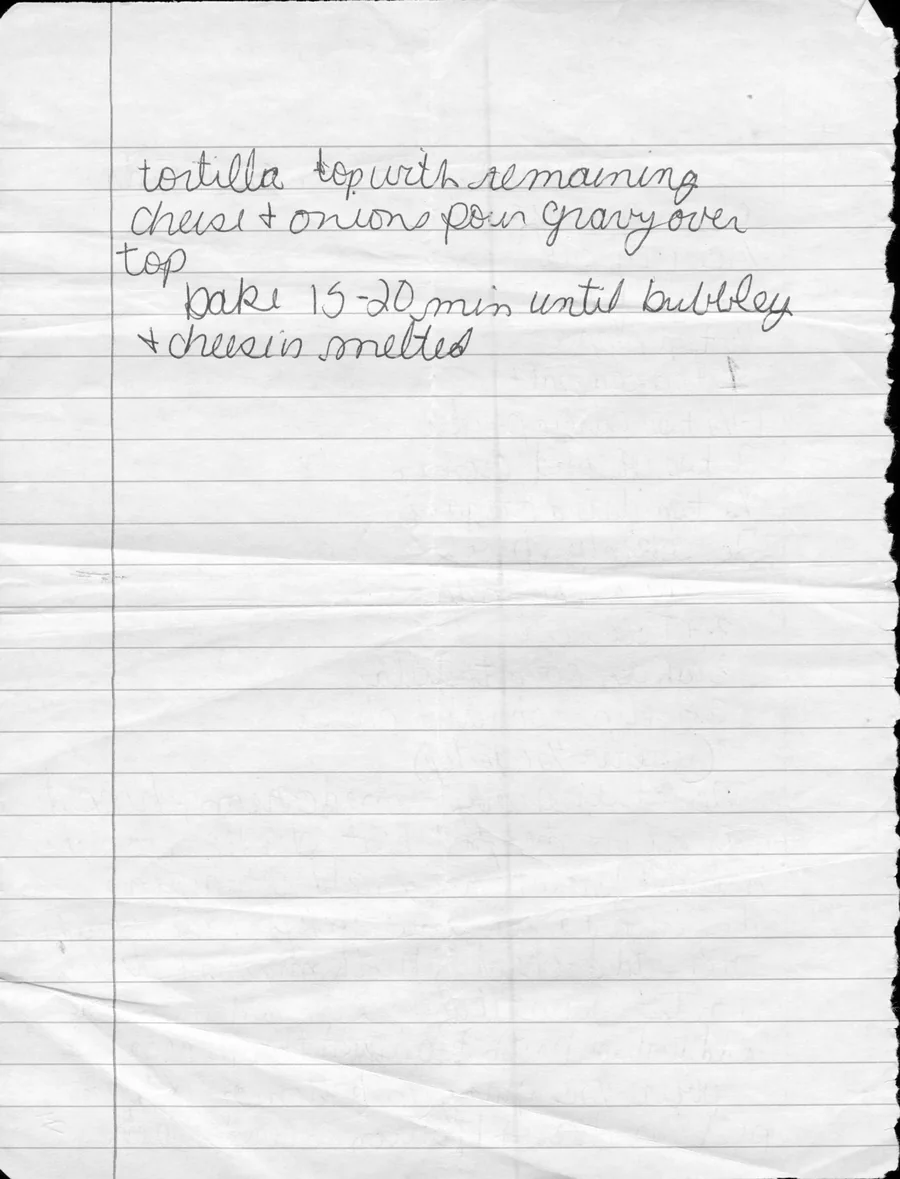 tortilla top with remaining
cheese + onions pour gravy over
top
bake 15-20 min until bubbley
+ cheese is melted